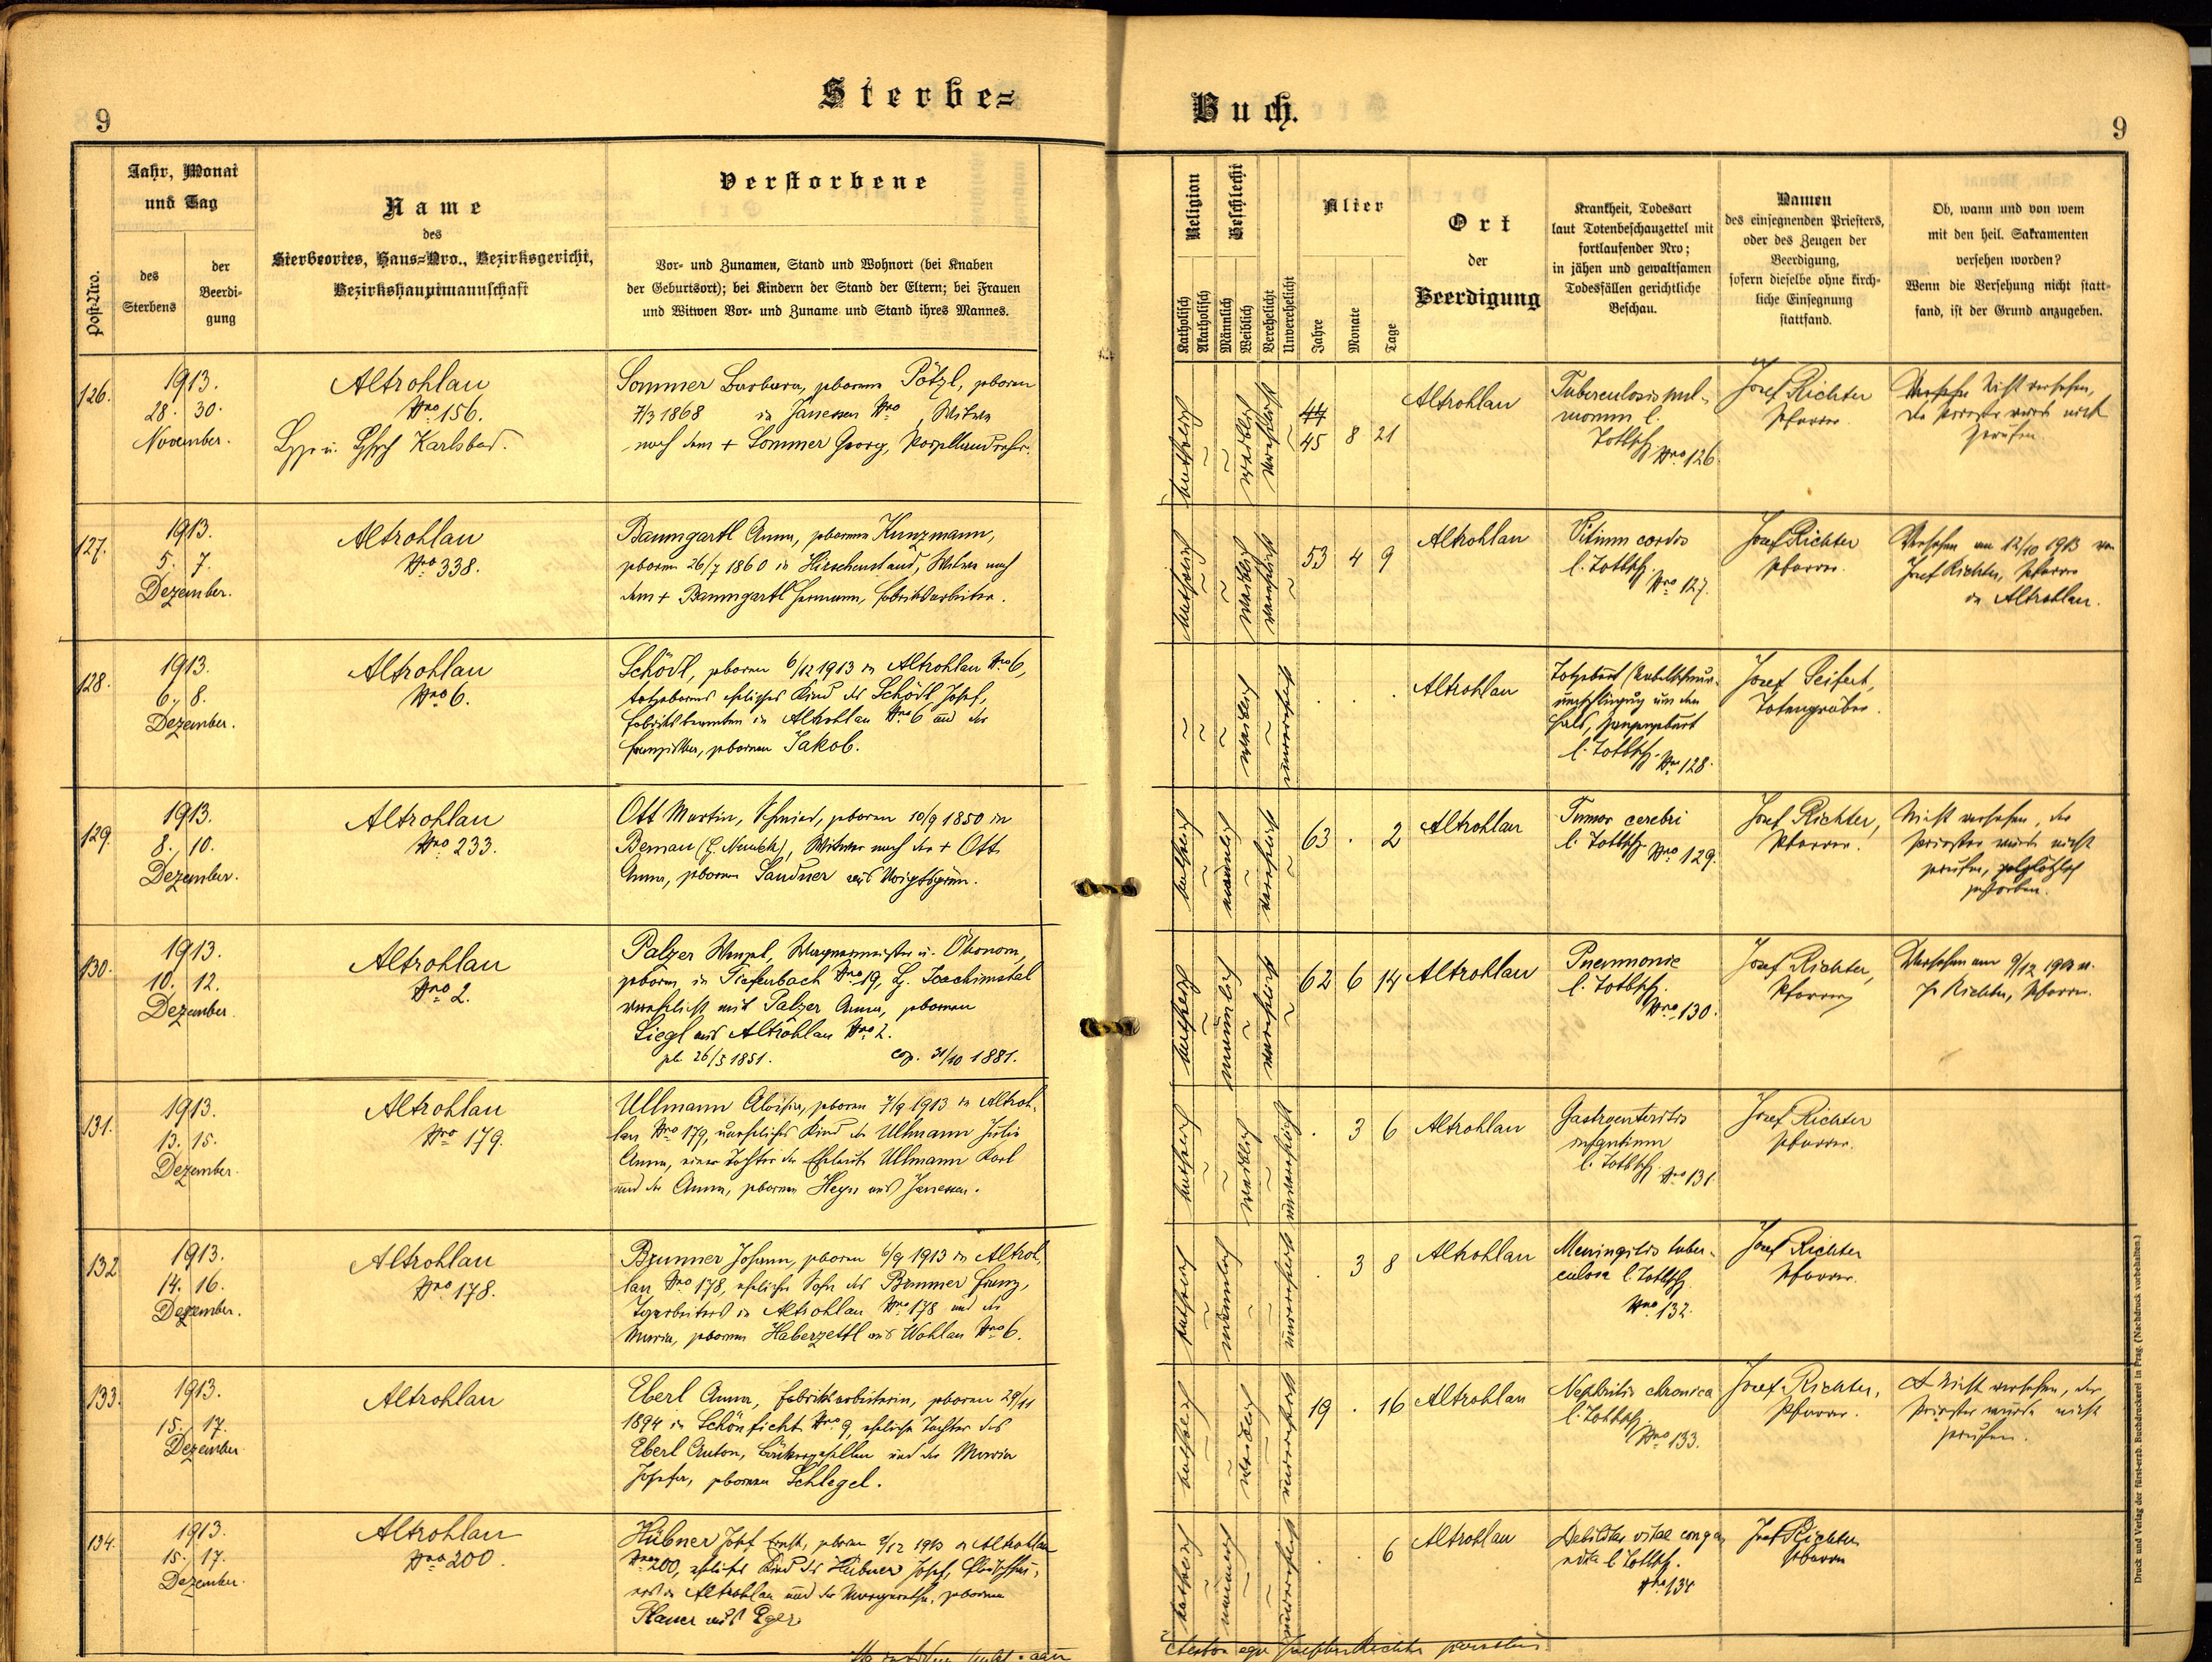 Sterbe=
Buch.
9
9
Post-Nro.
Jahr, Monat
und Tag
des
Sterbens
der
Beerdi-
gung
Name
des
Sterbeortes, Haus=Nro., Bezirksgericht,
Bezirkshauptmannschaft
Verstorbene
Vor- und Zunamen, Stand und Wohnort (bei Knaben
der Geburtsort); bei Kindern der Stand der Eltern; bei Frauen
und Witwen Vor- und Zuname und Stand ihres Mannes.
Religion
Katholisch
Akatholisch
Geschlecht
Männlich
Weiblich
Verehelicht
Unverehelicht
Alter
Jahre
Monate
Tage
Ort
der
Beerdigung
Krankheit, Todesart
laut Totenbeschauzettel mit
fortlaufender Nro;
in jähen und gewaltsamen
Todesfällen gerichtliche
Beschau.
Namen
des einsegnenden Priesters,
oder des Zeugen der
Beerdigung,
sofern dieselbe ohne kirch-
liche Einsegnung
stattfand.
Ob, wann und von wem
mit den heil. Sakramenten
versehen worden?
Wenn die Versehung nicht statt-
fand, ist der Grund anzugeben.
126.
1913.
28. 30.
November.
Altrohlau
Nro 156.
Karlsbad.
Sommer Barbara, geborene Pötzl, geboren
7/3 1868 in Janessen Nro , Witwe
nach dem + Sommer Georg,
katholisch
weiblich
verehelicht
44
45 8 21
Altrohlau
Tuberculosis pul-
monum l.
Totbsch.
Nro 126.
Josef Richter
Pfarrer.
Nicht versehen,
der Priester wurde nicht
gerufen.
127.
1913.
5. 7.
Dezember.
Altrohlau
Nro 338.
Baumgartl Anna, geborene Kunzmann,
geboren 26/7 1860 in Hirschenstand, Witwe nach
dem + Baumgartl Hermann, Fabriksarbeiter.
katholisch
weiblich
verehelicht
53 4 9
Altrohlau
Vitium cordis
l. Totbsch.
Nro 127.
Josef Richter
Pfarrer.
Versehen am 12/10 1913 von
Josef Richter, Pfarrer
in Altrohlau.
128.
1913.
6. 8.
Dezember.
Altrohlau
Nro 6.
Schödl, geboren 6/12 1913 in Altrohlau Nro 6,
totgeborenes eheliches Kind des Schödl Josef,
Fabriksbeamten in Altrohlau Nro 6 und der
Franziska, geborenen Jakob.
weiblich
unverehelicht
Altrohlau
Totgeburt (Nabelschnur-
umschlingung um den
Hals, Zangengeburt
l. Totbsch.
Nro 128.
Josef Seifert,
Totengräber.
129.
1913.
8. 10.
Dezember.
Altrohlau
Nro 233.
Ott Martin, Schmied, geboren 10/9 1850 in
Bernau (B. Neudek), Witwer nach der + Ott
Anna, geborene Sandner aus Voigtsgrün.
katholisch
männlich
verehelicht
63 . 2
Altrohlau
Tumor cerebri
l. Totbsch. Nro 129.
Josef Richter,
Pfarrer.
Nicht versehen, der
Priester wurde nicht
gerufen, plötzlich
gestorben.
130.
1913.
10. 12.
Dezember.
Altrohlau
Nro 2.
Palzer Wenzel, Wagnermeister u. Ökonom,
geboren in Tiefenbach Nro 19, B. Joachimstal
verehelicht mit Palzer Anna, geborenen
Siegl aus Altrohlau Nro 2.
geb. 26/5 1851. cop. 31/10 1881.
katholisch
männlich
verehelicht
62 6 14
Altrohlau
Pneumonie
l. Totbsch.
Nro 130.
Josef Richter,
Pfarrer
Versehen am 9/12 1913 v.
J. Richter, Pfarrer.
131.
1913.
13. 15.
Dezember.
Altrohlau
Nro 179.
Ullmann Aloisia, geboren 7/9 1913 in Altroh-
lau Nro 179, uneheliches Kind der Ullmann Julie
Anna, einer Tochter der Eheleute Ullmann Karl
und der Anna, geborenen Heyn aus Janessen.
katholisch
weiblich
unverehelicht
. 3 6
Altrohlau
Gastroenteritis
infantium
l. Totbsch.
Nro 131.
Josef Richter
Pfarrer.
132
1913.
14. 16.
Dezember.
Altrohlau
Nro 178.
Brunner Johann, geboren 6/9 1913 in Altroh-
lau Nro 178, ehelicher Sohn des Brunner Franz,
in Altrohlau Nro 178 und der
Maria, geborenen Haberzettl aus Wohlau Nro 6.
katholisch
männlich
unverehelicht
. 3 8
Altrohlau
Meningitis tuber-
culosa l. Totbsch.
Nro 132.
Josef Richter
Pfarrer.
133.
1913.
15. 17.
Dezember
Altrohlau
Eberl Anna, Fabriksarbeiterin, geboren 29/11
1894 in Schönficht Nro 9, eheliche Tochter des
Eberl Anton, und der Maria
Josefa, geborenen Schlegel.
katholisch
weiblich
unverehelicht
19 . 16
Altrohlau
Nephritis chronica
l. Totbsch.
Nro 133.
Josef Richter,
Pfarrer.
Nicht versehen, der
Priester wurde nicht
gerufen.
134.
1913.
15. 17.
Dezember.
Altrohlau
Nro 200.
Hübner Josef Ernst, geboren 9/12 1913 in Altrohlau
Nro 200, eheliches Kind des Hübner Josef,
in Altrohlau und der Margaretha, geborenen
Plauer aus Eger
katholisch
männlich
unverehelicht
. . 6
Altrohlau
Debilitas vitae conge-
nita l. Totbsch.
Nro 134
Josef Richter
Pfarrer
Druck und Verlag der fürst-erzb. Buchdruckerei in Prag. (Nachdruck vorbehalten.)